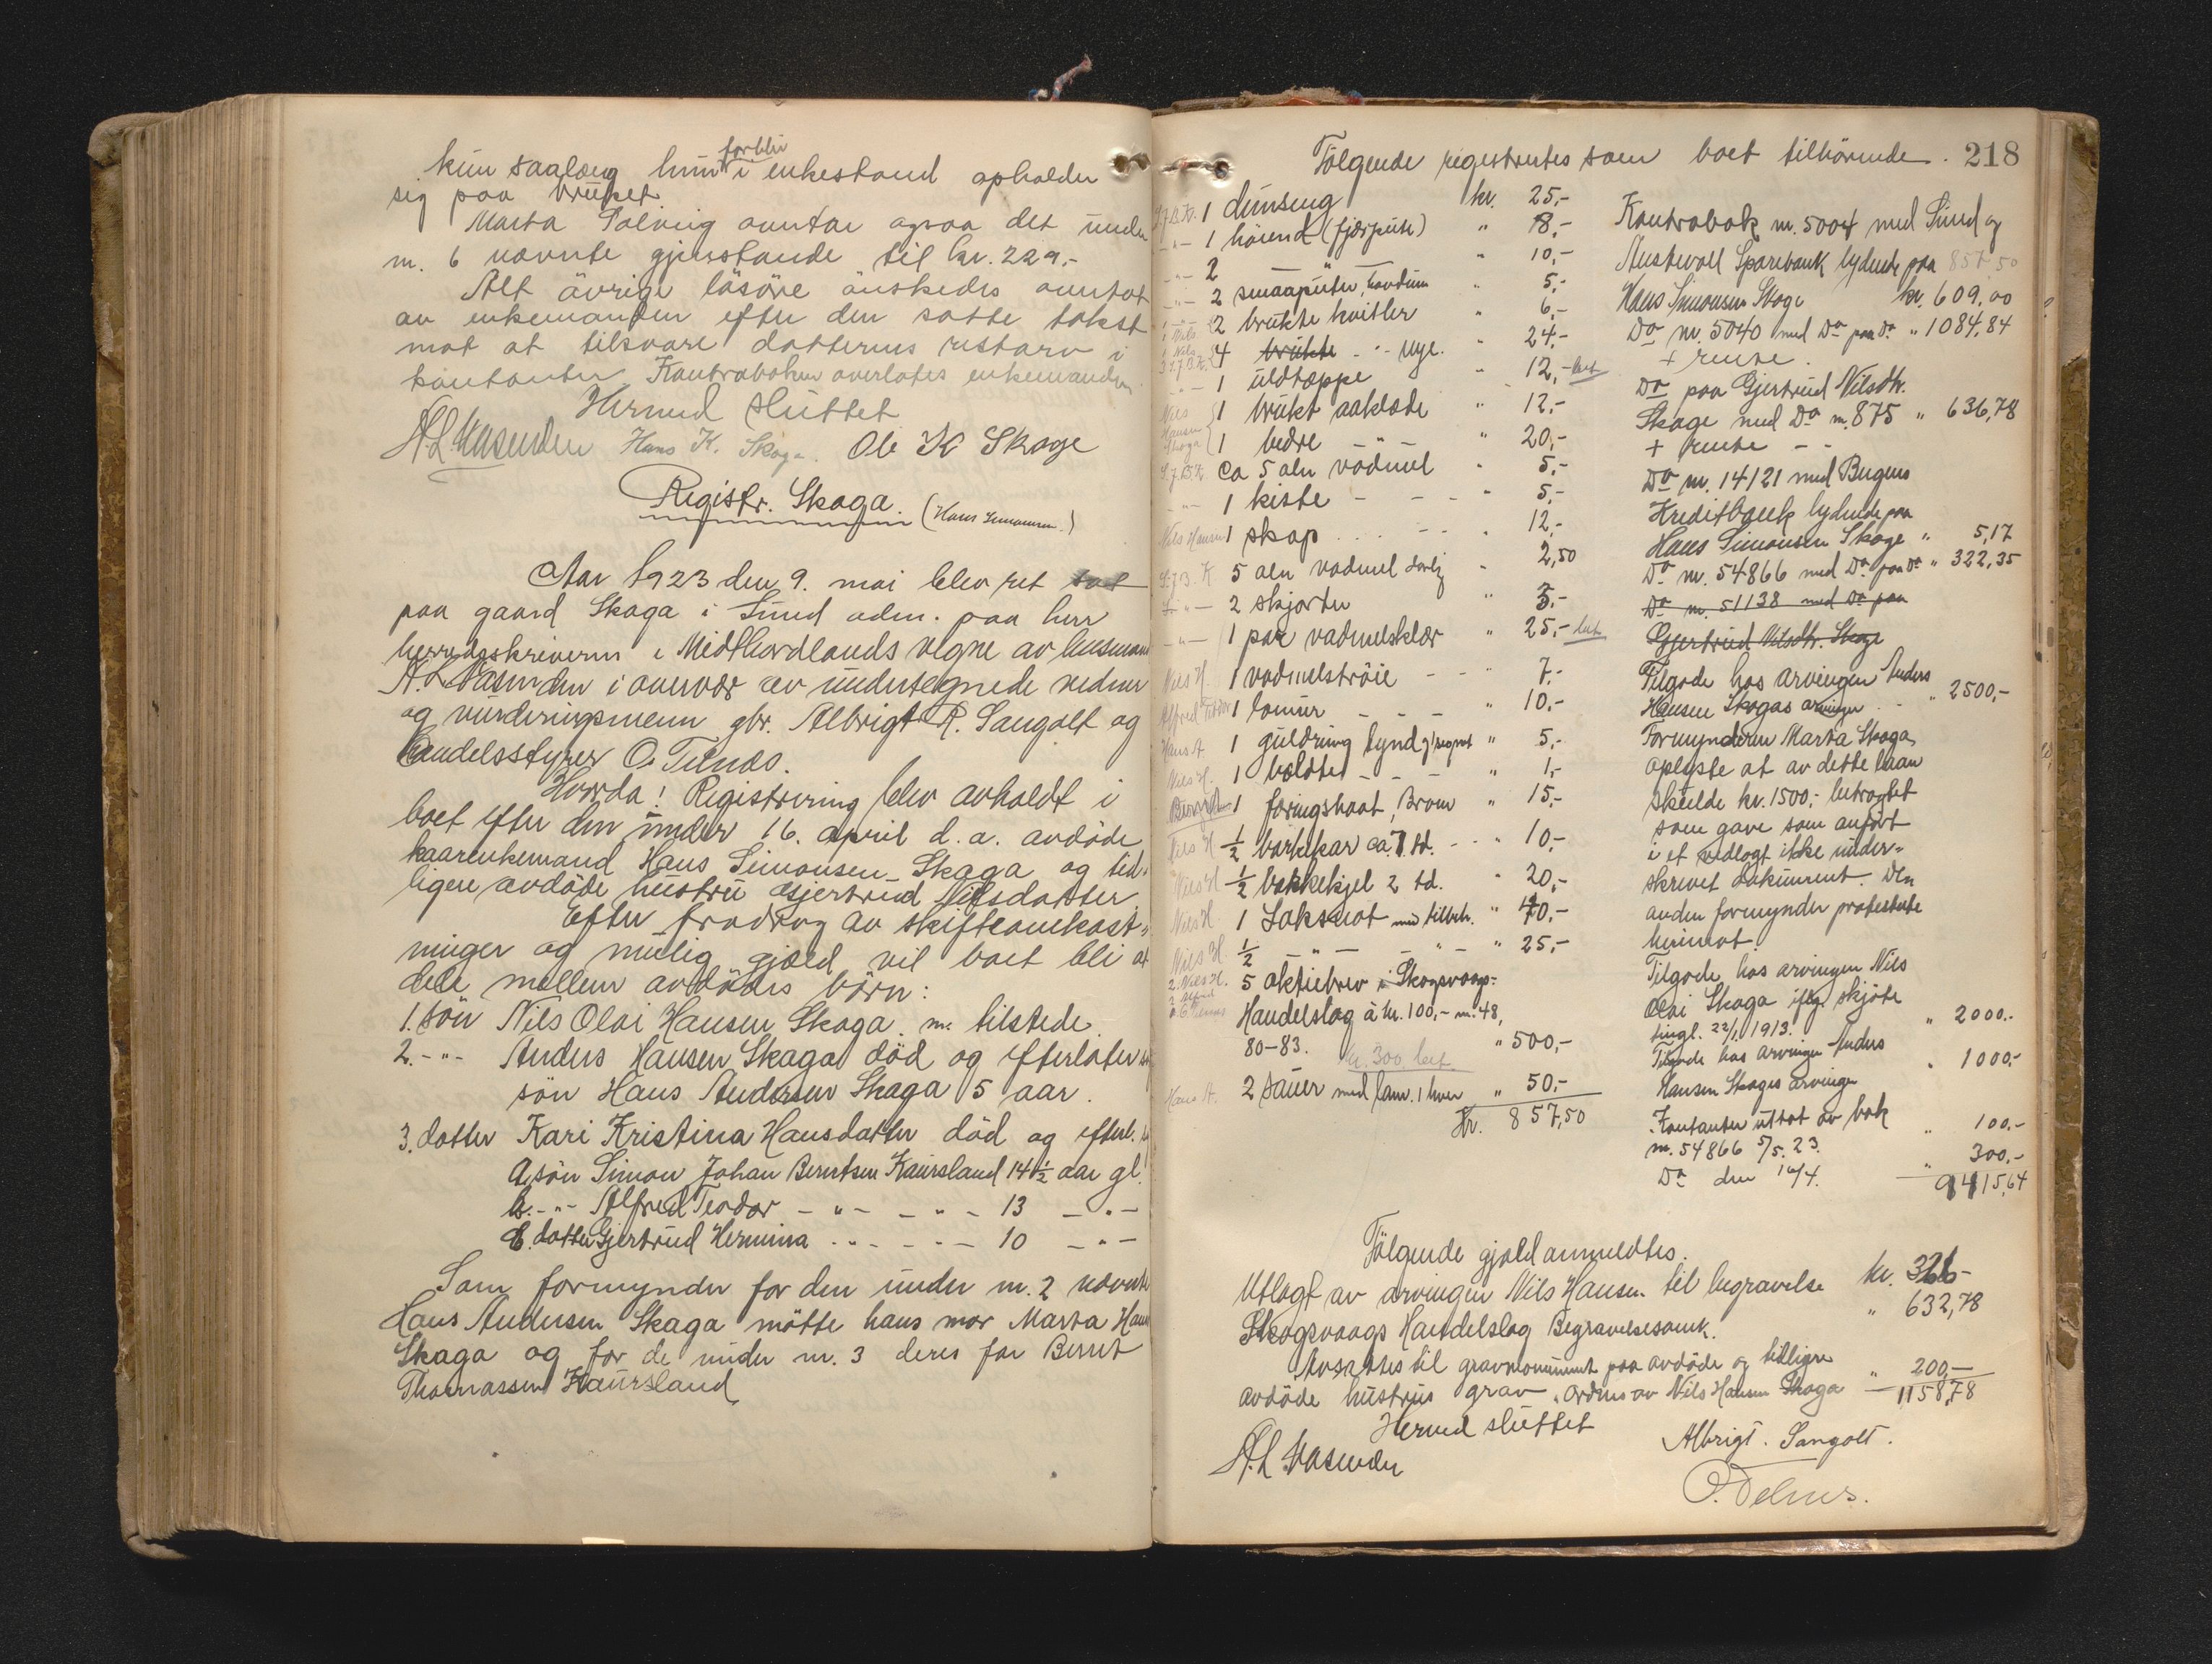 forblir
kun saalæng hun i enkestand opholder
sig paa bruket.
Marta Solveig overtar ogsaa det under
nr. 6 nævnte gjenstande til kr. 229.-
Alt øvrige løsøre ønskedes overtat
av enkemanden efter den satte takst
mot at tilsvare datterens restarv i
kontanter. Kontraboken overlates enkemanden
Hermed sluttet
A. L. Vasenden Hans K. Skaga. Ole K Skage
Registr. Skaga. (Hans Simonsen.)
Aar 1923 den 9. mai blev ret sat
paa gaard Skaga i Sund adm. paa herr
herredsskriveren i Midthordlands vegne av lensmand
A. L. Vasenden i overvær av undertegnede vidner
og vurderingsmenn gbr. Albrigt R. Sangolt og
handelsstyrer O. Telnes.
Hvorda! Registrering blev avholdt i
boet efter den under 16. april d.a. avdøde
kaarenkemand Hans Simonsen Skaga og tid-
ligere avdøde hustru Gjertrud Nilsdatter.
Efter fradrag av skifteomkost-
ninger og mulig gjæld vil boet bli at
dele mellem avdødes børn:
1. søn Nils Olai Hansen Skaga. m. tilstede.
2. -"- Anders Hansen Skaga død og efterlater
søn Hans Andersen Skaga 5 aar.
3. datter Kari Kristina Hansdatter død og efterl.
a. søn Simon Johan Berntsen Kaursland 14 1/2 aar gl.
b. -"- Alfred Teodor -"- -"- 13 -"-
c. datter Gjertrud Hermina -"- -"- 10 -"-
Som formynder for den under nr. 2 nævnte
Hans Andersen Skaga møtte hans mor Marta
Skaga og for de under nr. 3 deres far Bernt
Thomassen Kaursland
218
Følgende registrertes som boet tilhørende.
1 dunseng kr. 25,-
-"- 1 høiend (fjærpute) " 8,-
-"- 2 " 10,-
-"- 2 smaaputer, " 5,-
2 brukte kvitler " 6,-
4 brukte -"- nye. " 24,-
-"- 1 uldtæppe " 12,-
Nils 1 brukt aaklæde " 12,-
Hansen Skaga 1 bedre -"- " 20,-
S.J.B.K. ca 5 alen vadmel " 5,-
-"- 1 kiste - - - " 5,-
Nils Hansen 1 skap . . . - - " 12,-
S.J.B.K 5 alen vadmel darlig " 2,50
-"- 2 skjorter " 3,-
-"- 1 par vadmelsklær " 25,-
Nils H. 1 vadmelstrøie - - " 7,-
Alfred Teodor 1 lomur - - - " 10,-
Hans A 1 guldring tynd " 5,-
Nils H. 1 boldter - - - " 1,-
1 føringsbaat, " 15,-
Nils H 1/2 barkekar ca. 7 td. - - " 10,-
Nils H 1/2 bakkekjel 2 td. " 20,-
Nils H. 1 Laksenot med tilbeh. " 40,-
Nils H 1/2 -"- -"- " 25,-
2 Nils H. 5 aktiebrev i Skogsvaags-
Handelslag à kr. 100,- nr. 48,
80-83. kr. 300 " 500,-
Hans A. 2 sauer med lam. 1 hver " 50,-
Kr. 857,50
Kontrabok nr. 5004 med Sund og
Austevoll Sparebank lydende paa 857,50
Hans Simonsen Skage kr. 609,00
Do nr. 5040 med Do paa Do " 1084,84
+ rente.
Do paa Gjertrud Nilsdtr.
Skage med Do nr. 875 " 636,78
+ rente - -
Do nr. 14121 med Bergens
Kreditbank lydende paa
Hans Simonsen Skage " 5,17
Do nr. 54866 med Do paa Do " 322,35
Do nr. 51138 med Do paa
Gjertrud Nilsdtr. Skage
Tilgode hos arvingen Anders
Hansen Skagas arvinger " 2500,-
Formynderen Marta Skaga
oplyste at av dette laan
skulde kr. 1500,- betragtet
som gave som anført
i et vedlagt ikke under-
skrevet dokument. Den
anden formynder protesterte
herimot.
Tilgode hos arvingen Nils
Olai Skaga iflg. skjøte
tingl. 22/1 1913. " 2000.-
Tilgode hos arvingen Anders
Hansen Skages arvinger " 1000,-
Kontanter uttat av bok
nr. 54866 5/5. 23. " 100.-
Do den 14/4. " 300,-
9415,64
Følgende gjæld anmeldtes.
Utlagt av arvingen Nils Hansen til begravelse kr. 326-
Skogsvaags Handelslag Begravelsesomk. " 632,78
Avsættes til gravmonument paa avdøde og tidligere
avdøde hustrus grav. ordnes av Nils Hansen Skaga " 200,-
1158,78
Hermed sluttet
A. L. Vasenden Albrigt. Sangolt.
O. Telnes.